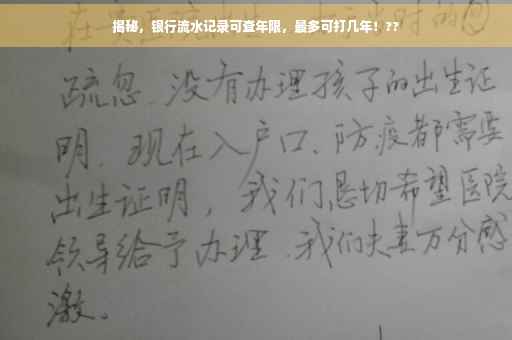 揭秘，银行流水记录可查年限，最多可打几年！??
疏忽.没有办理孩子的出生证
明.现在入户口、防疫都需要
出生证明，我们恳切希望医院
领导给予办理.我们夫妻万分感
激。